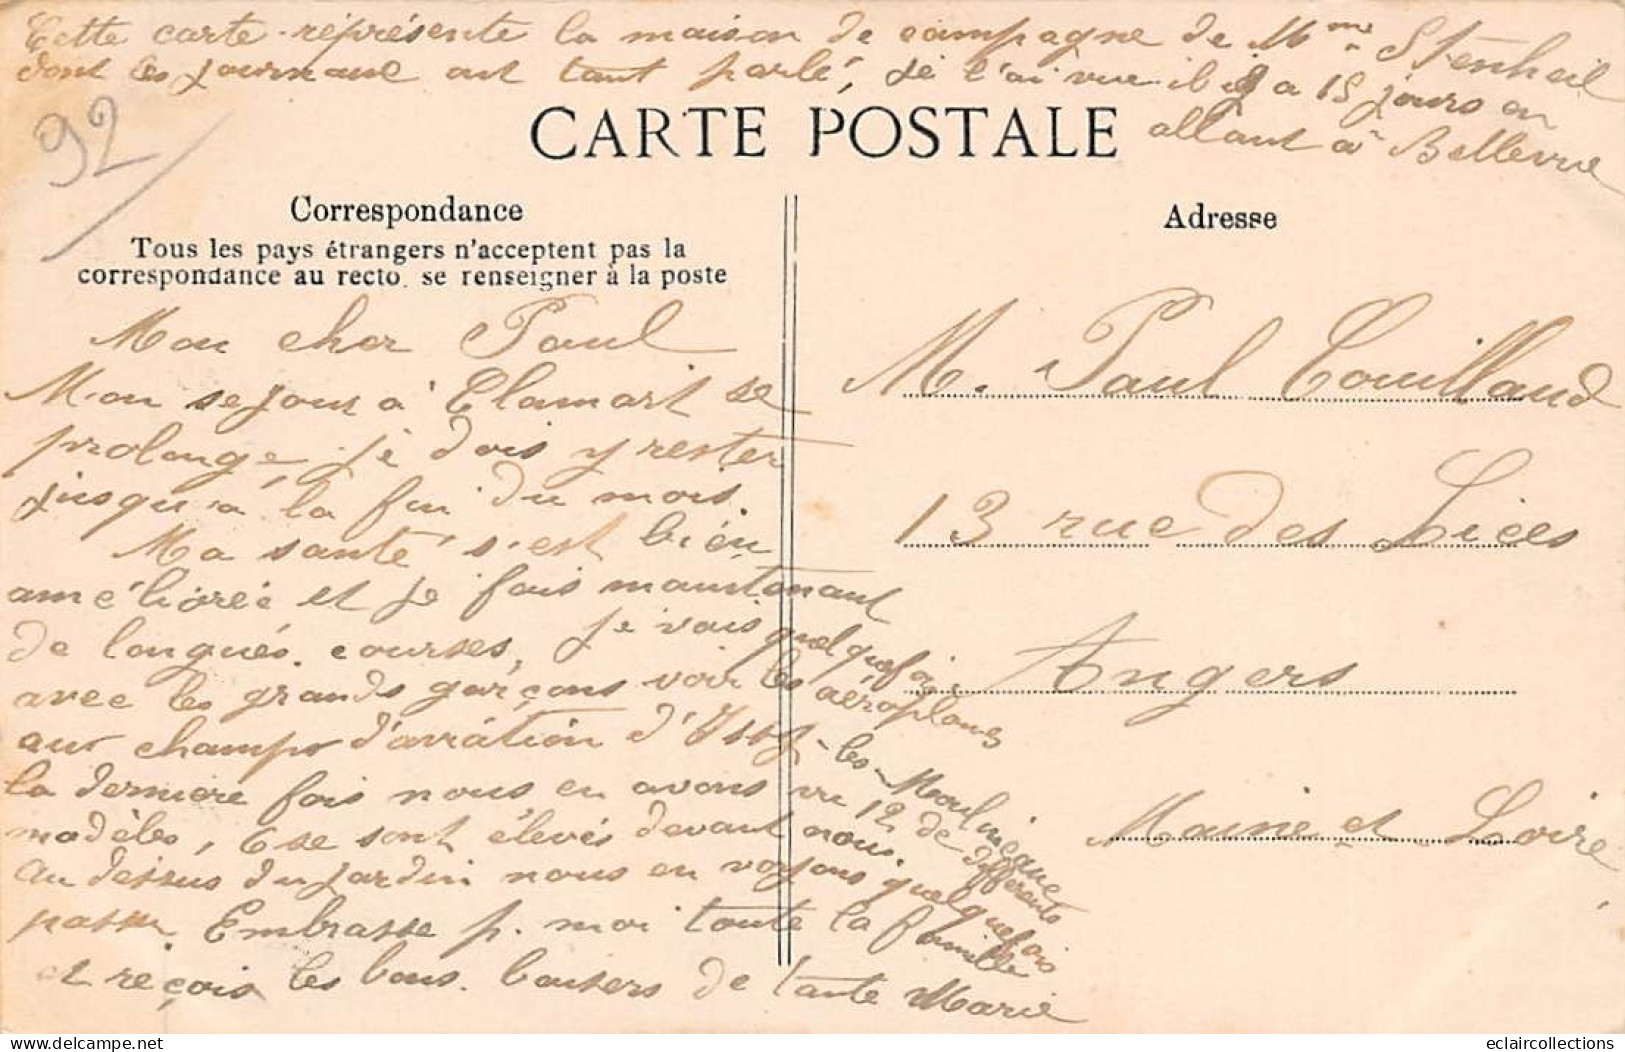 Cette carte représente la maison de campagne de Mme Stenheil
dont les journaux ont tant parlé, je l'ai vue il y a 15 jours en
allant à Bellevue
92
CARTE POSTALE
Correspondance
Tous les pays étrangers n'acceptent pas la
correspondance au recto, se renseigner à la poste
Adresse
Mon cher Paul
Mon séjour à Clamart se
prolonge, je dois y rester
jusqu'à la fin du mois.
Ma santé s'est bien
améliorée et je fais maintenant
de longues courses, je vais quelquefois
avec les grands garçons voir les aéroplanes
au champ d'aviation d'Issy-les-Moulineaux
la dernière fois nous en avons vu 12 de différents
modèles, 6 se sont élevés devant nous.
Au dessus du jardin nous en voyons quelquefois
passer Embrasse p. moi toute la famille
et reçois les bons baisers de tante Marie
M. Paul Couillaud
13 rue des Lices
Angers
Maine et Loire
eclaircollections